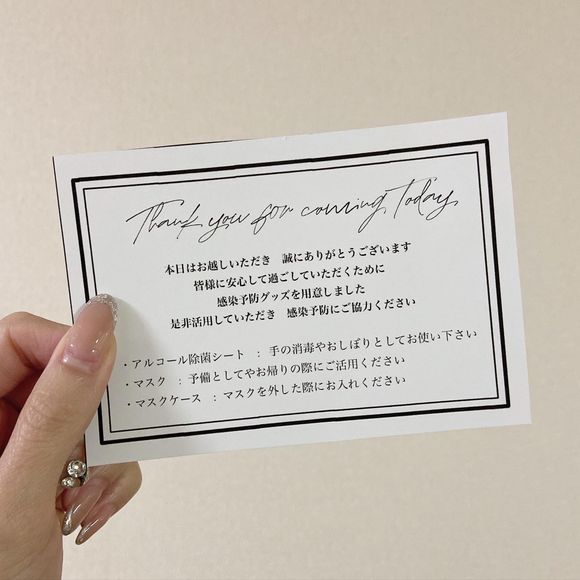 Thank you for coming Today
本日はお越しいただき　誠にありがとうございます
皆様に安心して過ごしていただくために
感染予防グッズを用意しました
是非活用していただき　感染予防にご協力ください
・アルコール除菌シート　：　手の消毒やおしぼりとしてお使い下さい
・マスク　：予備としてやお帰りの際にご活用ください
・マスクケース　：　マスクを外した際にお入れください